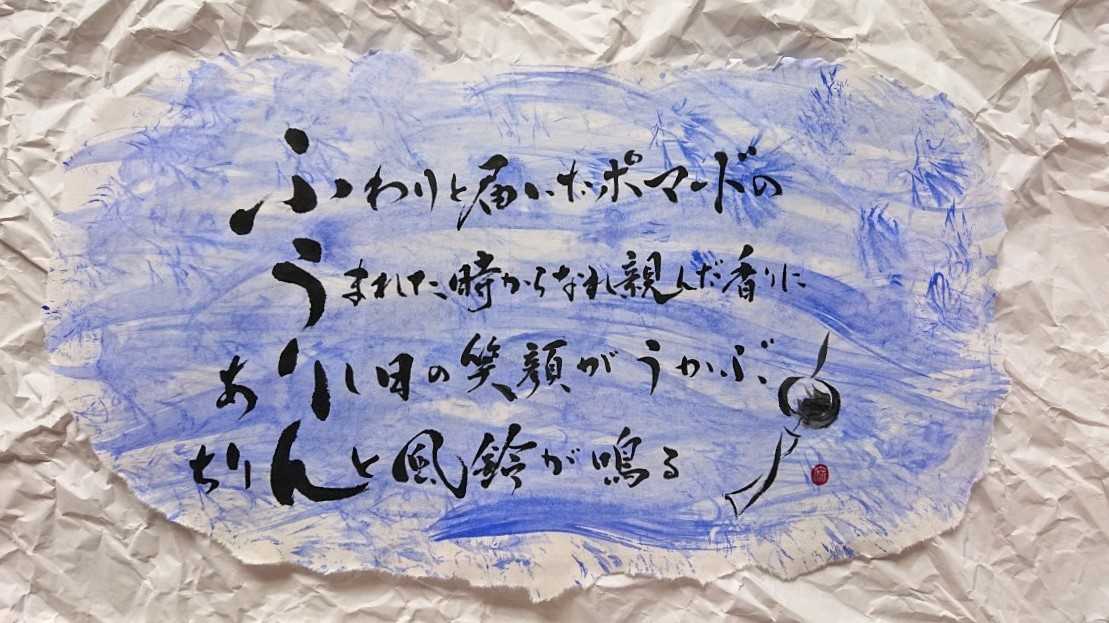 ふわりと届いたポマードの
うまれた時からなれ親んだ香りに
あり日の笑顔がうかぶ
ちりんと風鈴が鳴る